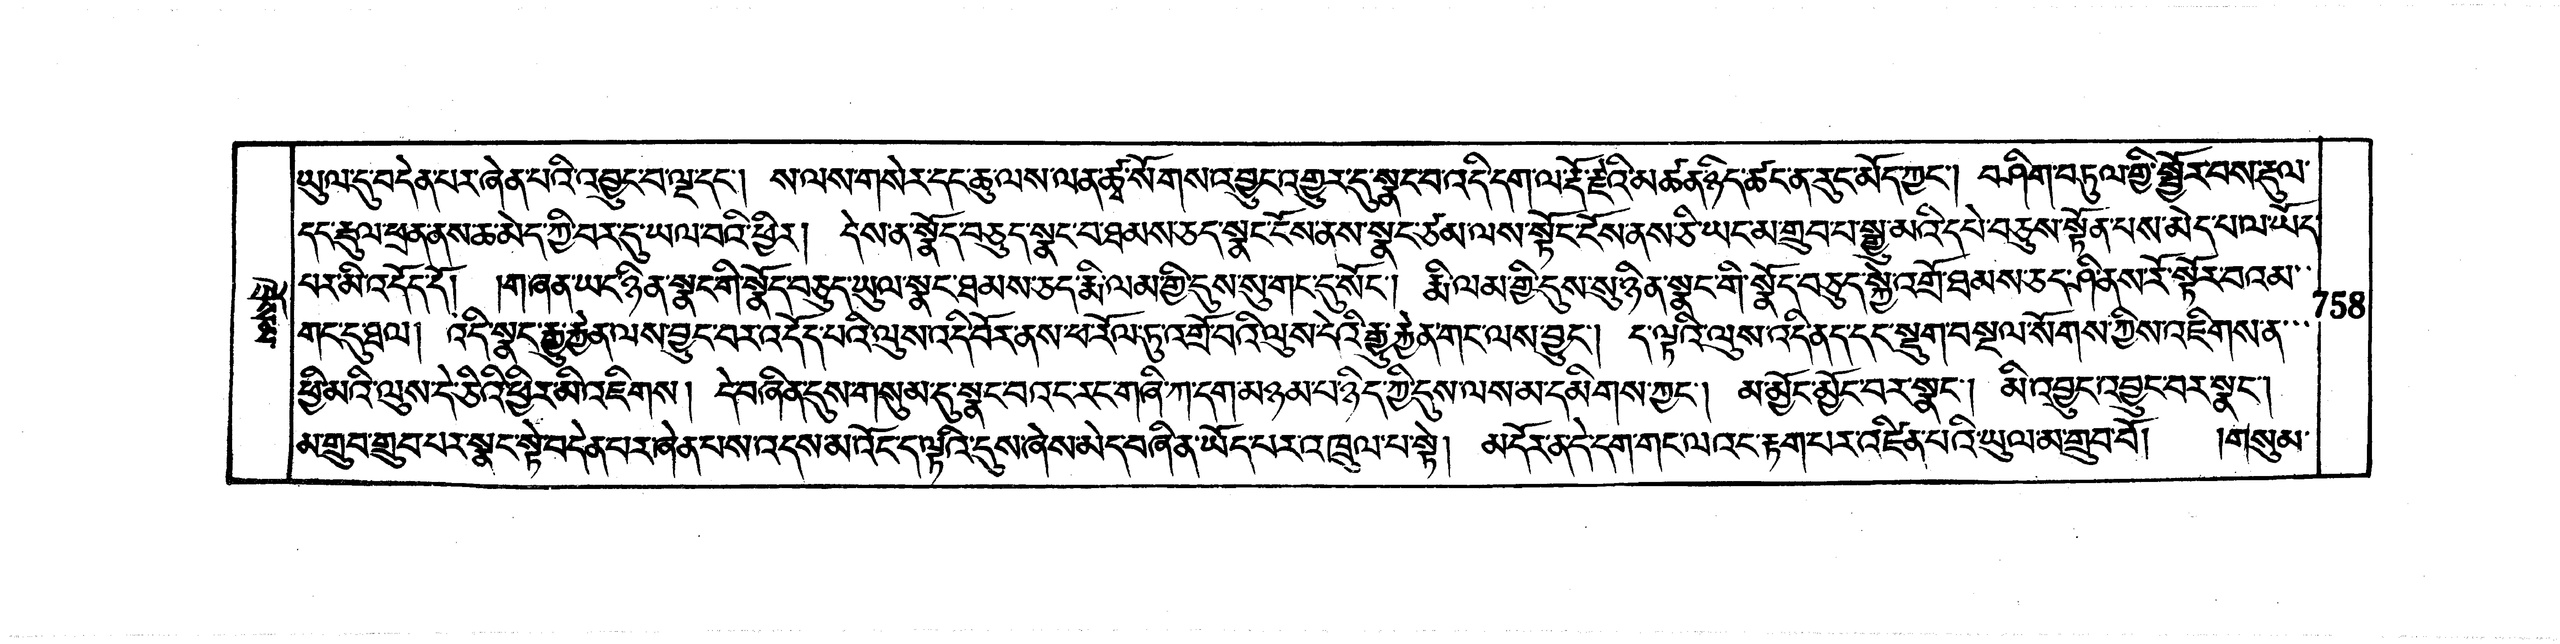 ཡུལ་དུ་བདེན་པར་ཞེན་པའི་འབྱུང་བ་ལྔ་དང་། ས་ལས་གསེར་དང་ཆུ་ལས་ལན་ཚྭ་སོགས་འབྱུང་འགྱུར་དུ་སྣང་བ་འདི་དག་ལ་རྡོ་རྗེའི་མཚན་ཉིད་ཚང་ན་རུང་མོད་ཀྱང་། བཤིག་བཏུལ་གྱི་སྦྱོར་བས་རྡུལ་
དང་རྡུལ་ཕྲན་ནས་ཆ་མེད་ཀྱི་བར་དུ་ཡལ་བའི་ཕྱིར། དེས་ན་སྣོད་བཅུད་སྣང་བ་ཐམས་ཅད་སྣང་ངོས་ནས་སྣང་ཙམ་ལས་སྟོང་ངོས་ནས་ཅི་ཡང་མ་གྲུབ་པ་སྒྱུ་མའི་དཔེ་བཅུས་སྟོན་པས་མེད་པ་ལ་ཡོད་
པར་མི་འདོད་དོ། །གཞན་ཡང་ཉིན་སྣང་གི་སྣོད་བཅུད་ཡུལ་སྣང་ཐམས་ཅད་རྨི་ལམ་གྱི་དུས་སུ་གང་དུ་སོང་། རྨི་ལམ་གྱི་དུས་སུ་ཉིན་སྣང་གི་སྣོད་བཅུད་སྐྱེ་འགྲོ་ཐམས་ཅད་ཤི་ནས་རོ་སྟོར་བའམ་
གང་དུ་ཐལ། འདི་སྣང་རྒྱུ་རྐྱེན་ལས་བྱུང་བར་འདོད་པའི་ལུས་འདི་བོར་ནས་ཕ་རོལ་ཏུ་འགྲོ་བའི་ལུས་དེའི་རྒྱུ་རྐྱེན་གང་ལས་བྱུང་། ད་ལྟའི་ལུས་འདི་ནད་དང་སྡུག་བསྔལ་སོགས་ཀྱིས་འཇིགས་ན་
ཕྱི་མའི་ལུས་དེ་ཅིའི་ཕྱིར་མི་འཇིགས། དེ་བཞིན་དུས་གསུམ་དུ་སྣང་བ་འང་རང་གཞི་ཀ་དག་མཉམ་པ་ཉིད་ཀྱི་དུས་ལས་མ་དམིགས་ཀྱང་། མ་མྱོང་མྱོང་བར་སྣང་། མི་འབྱུང་འབྱུང་བར་སྣང་།
མ་གྲུབ་གྲུབ་པར་སྣང་སྟེ་བདེན་པར་ཞེན་པས་འདས་མ་འོང་ད་ལྟའི་དུས་ཞེས་མེད་བཞིན་ཡོད་པར་འཁྲུལ་པ་སྟེ། མདོར་ན་དེ་དག་གང་ལ་འང་རྟག་པར་འཛིན་པའི་ཡུལ་མ་གྲུབ་བོ། །གསུམ་
758